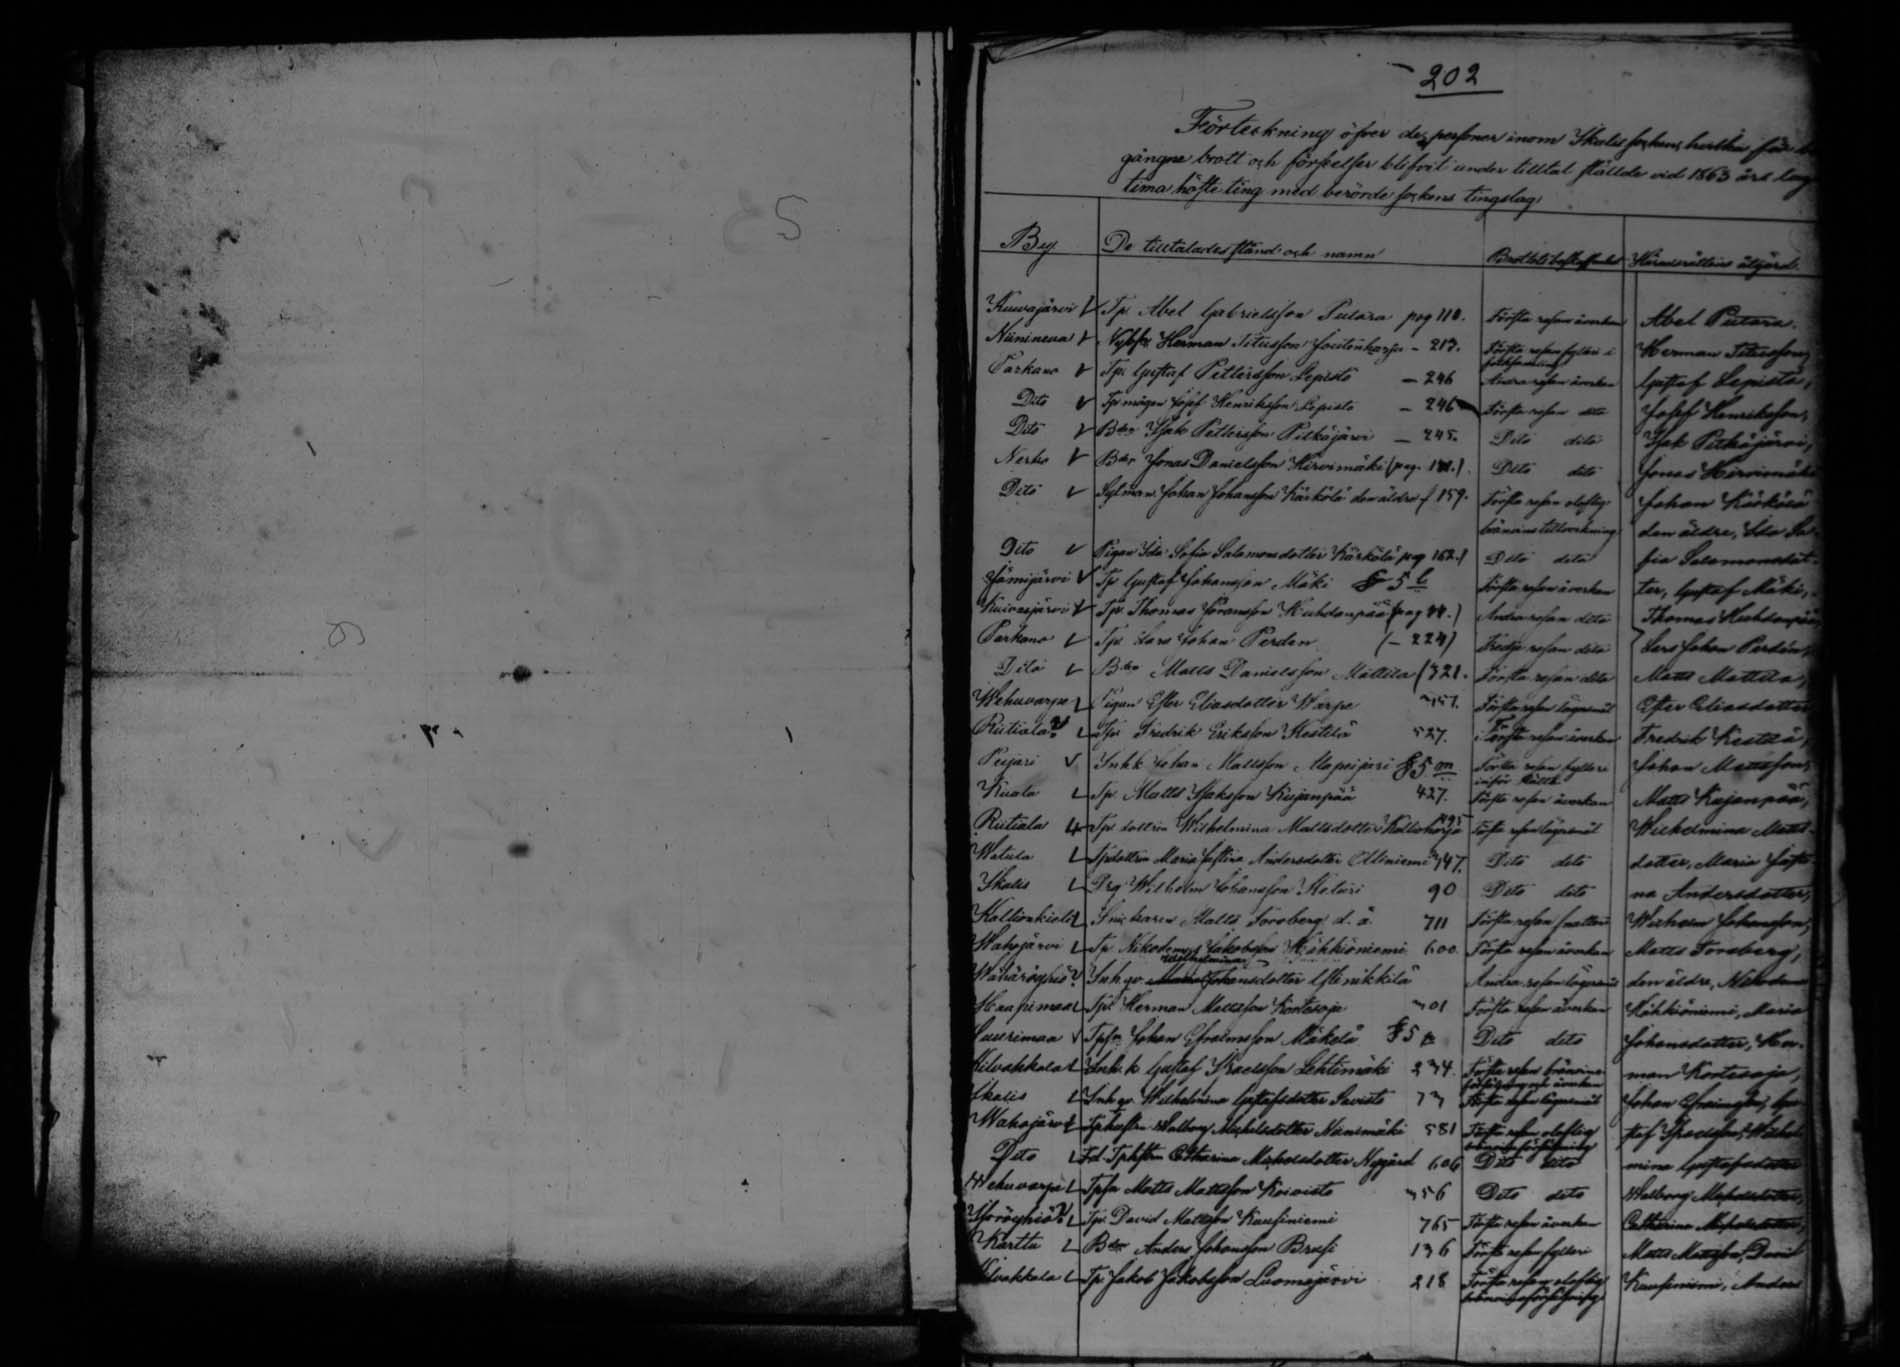 202
Förteckning öfver de personer inom Ikalis socken, hvilka för be-
gångne brott och förseelser blifvit under tilltal ställde vid 1863 års lag
tima höste ting med berörde sockens tingslag
By De tilltalades stånd och namn Brottets beskaffenhet Häradsrättens åtgärd.
Kuivasjärvi Tp. Abel Gabrielsson Putara pag 110. Första resan åverkan Abel Putara.
Niinineva Herman Titusson - 213. Första resan fylleri i Herman Titusson,
Parkano Tp. Gustaf Pettersson Lepistö - 246 Andra resan åverkan Gustaf Lepistö,
Dito Tp mågen Josef Henriksson Lepistö - 246 Första resan dito Josef Henriksson,
Dito Bdn Isak Pettersson Pitkäjärvi - 245. Dito dito Isak Pitkäjärvi,
Nerko Bdn Jonas Danielsson Hirvimäki (pag. 181.) Dito dito Jonas Hirvimäki
Dito Sytman Johan Johansson Kärkölä den äldre ( 159. Första resan oloflig Johan Kärkölä
bränvins tillverkning den äldre, Ida So-
Dito Pigan Ida Sofia Salomonsdotter Kärkölä pag 162.) Dito dito fia Salomonsdot-
Jämijärvi Tp Gustaf Johansson Mäki § 5 l Första resan åverkan ter, Gustaf Mäki,
Kuivasjärvi Tp. Thomas Göransson Huhdanpää (pag 44.) Andra resan dito Thomas Huhdanpää,
Parkano Tp. Lars Johan Perdén (- 224) Tredje resan dito Lars Johan Perdén,
Dito Bdn Matts Danielsson Mattila (321. Första resan dito Matts Mattila,
Wehuvarpe Pigan Ester Eliasdotter Warpe 757. Första resan lägersmål Ester Eliasdotter
Riitiala Tp. Fredrik Eriksson Kestilä 527. Första resan åverkan Fredrik Kestilä,
Peijari Inhk Johan Mattsson Alapeijari § 5 m Första resan fylleri Johan Mattsson,
inför Rätta
Kuala Tp. Matts Isaksson Kujanpää 427. Första resan åverkan Matts Kujanpää,
Riitiala Tp dottren Wilhelmina Mattsdotter Kallioharja 595 Första resan lägersmål Wilhelmina Matts-
Watula Tpdottren Maria Justina Andersdotter Olliniemi 347. Dito dito dotter, Maria Justi-
Ikalis Drg Wilhelm Johansson Keturi 90 Dito dito na Andersdotter,
Kallionkieli Matts Forsberg d. ä. 711 Första resan snatteri Wilhelm Johansson,
Wahojärvi Tp. Nikodemus Jakobsson Kähköniemi 600. Första resan åverkan Matts Forsberg,
Wilhelmina
Wähäröyhiö? Inhqv Johansdotter Ylenikkilä Andra resan lägersmål den äldre, Nikodemus
Haapimaa Tp. Herman Mattsson Kortesoja 701 Första resan åverkan Kähköniemi, Maria
Luurimaa Tpsn Johan Efraimsson Mäkelä § 5 Dito dito Johansdotter, Her-
Kilvakkala Inh. k Gustaf Israelsson Lehtimäki 234. Första resan bränvins man Kortesoja,
försäljning och åverkan
Ikalis Inhqv. Wilhelmina Gustafsdotter Savisto 73 Första resan lägersmål Johan Efraimsson, Gu-
Wahojärvi Tphustrun Walborg Michelsdotter Nummimäki 581 Första resan oloflig staf Israelsson, Wilhel
bränvinsförsäljning
Dito Fd Tphstrun Catharina Michelsdotter Nygård 606 Dito dito mina Gustafsdotter
Wehuvarpe Tpsn Matts Mattsson Koivisto 756 Dito dito Walborg Michelsdotter,
Isoröyhiö Tp. David Mattsson Kausiniemi 765 Första resan åverkan Catharina Michelsdotter,
Kartta Bdn Anders Johansson Brusi 136 Första resan fylleri Matts Mattsson, David
Kilvakkala Tp Jakob Jakobsson Luomajärvi 218 Första resan oloflig Kausiniemi, Anders
bränvinsförsäljning